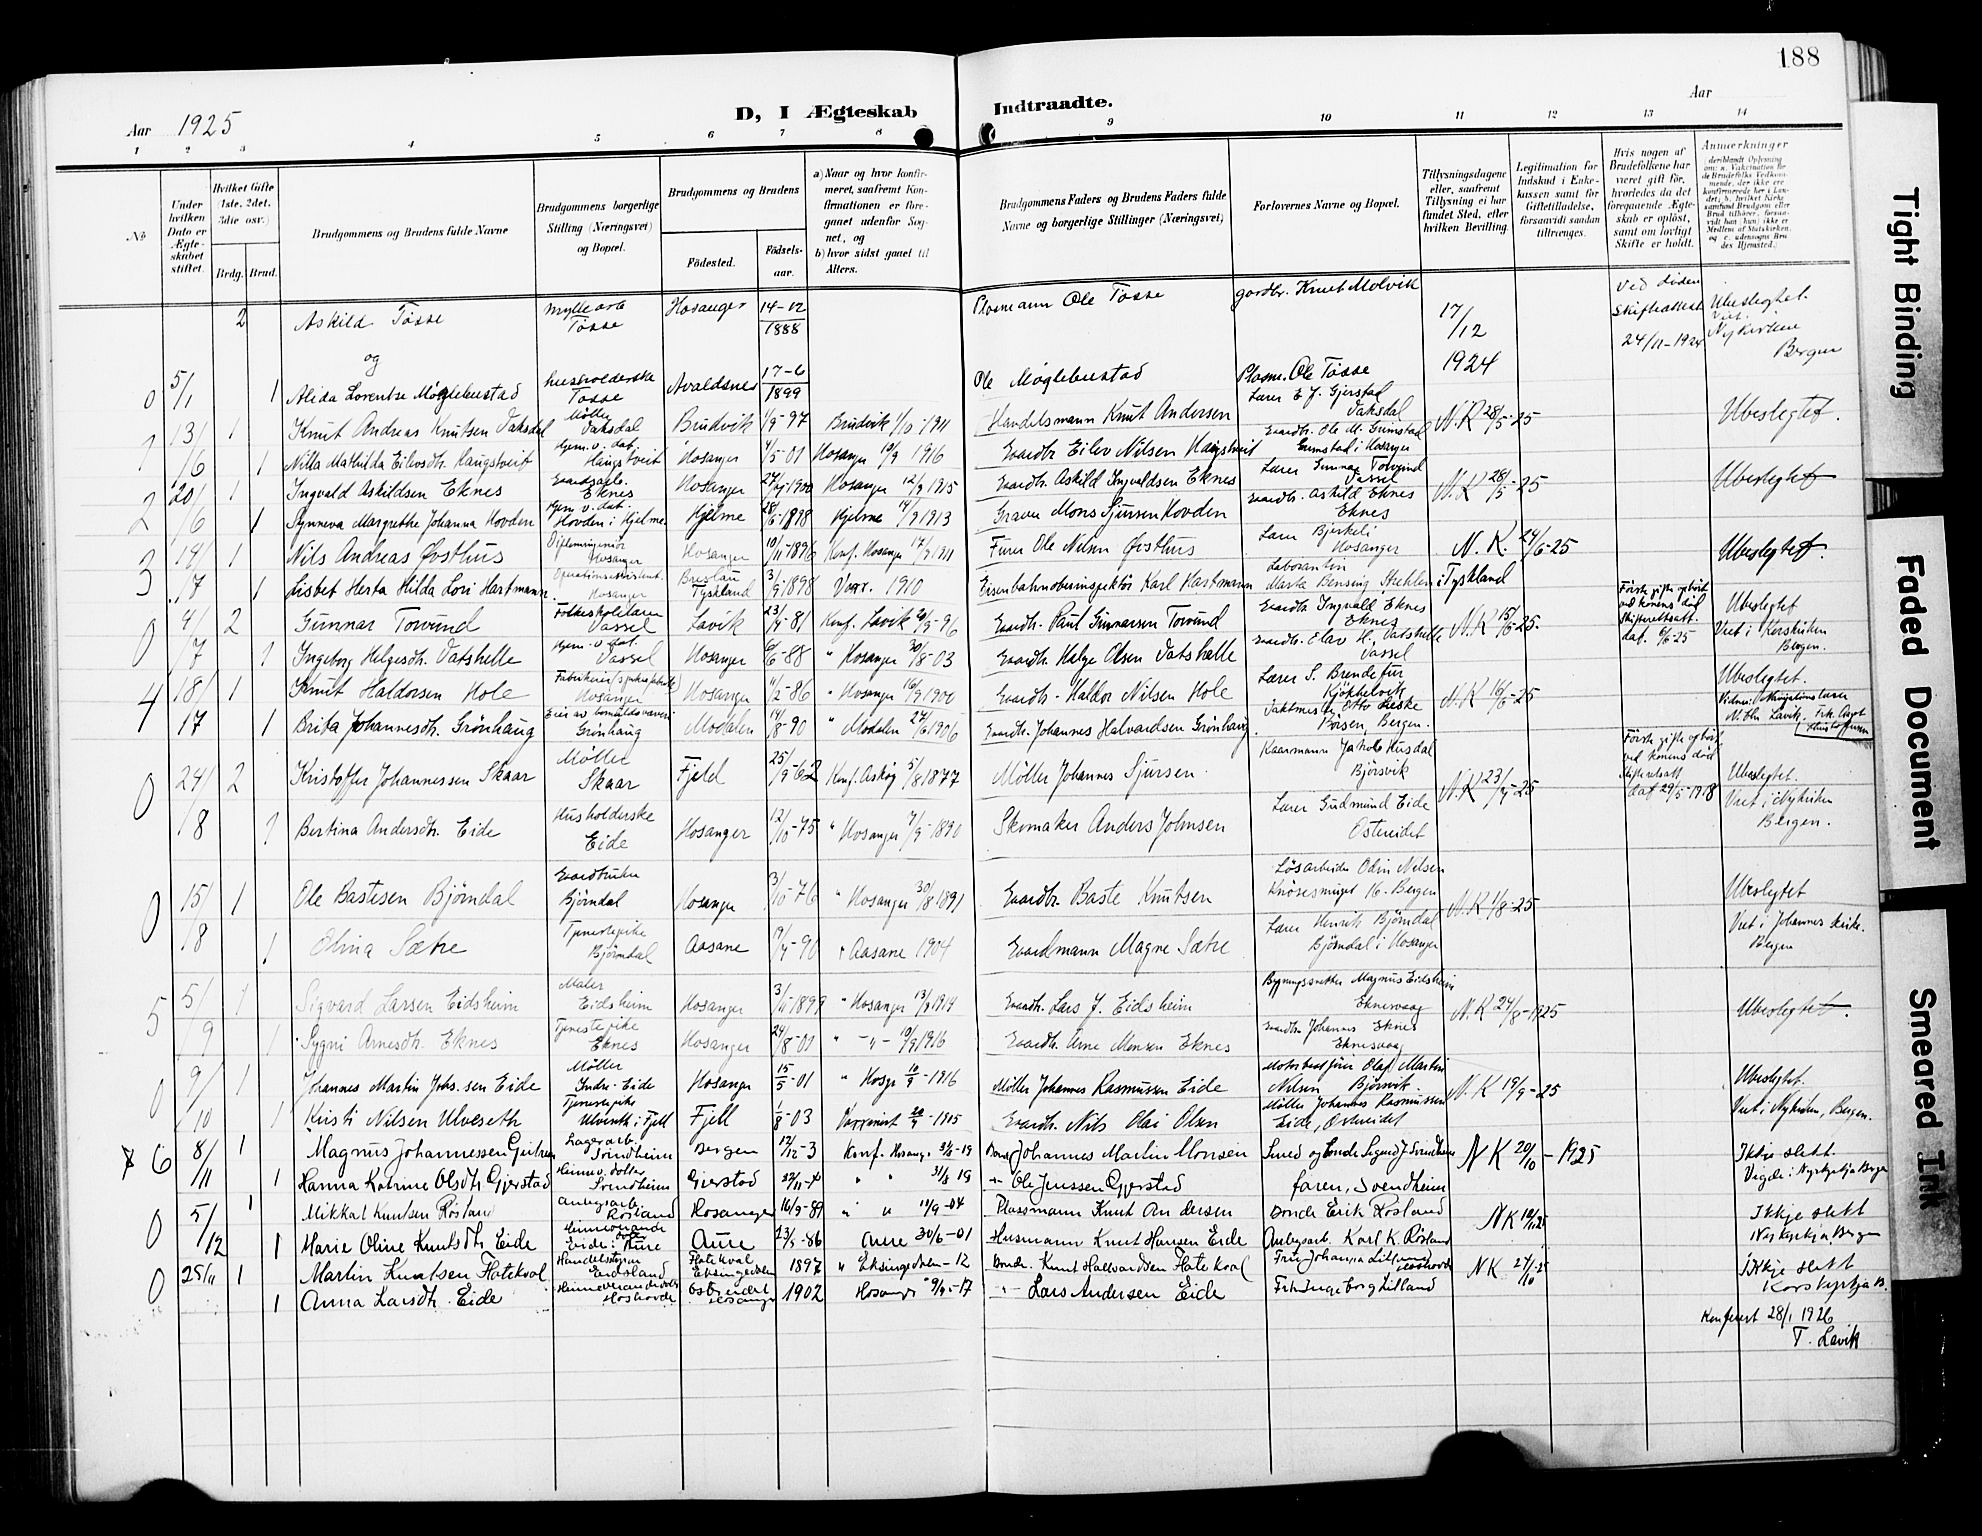 188
Aar 1925
D, I Ægteskab Indtraadte.
Aar
1 2 3 4 5 6 7 8 9 10 11 12 13 14
№
Under hvilken Dato er Ægteskabet stiftet.
Hvilket Gifte (1ste, 2det, 3die osv.)
Brdg. Brud.
Brudgommens og Brudens fulde Navne
Brudgommens borgerlige Stilling (Næringsvei) og Bopæl.
Brudgommens og Brudens
Fødested. Fødselsaar.
a) Naar og hvor konfirmeret, saafremt Konfirmationen er foregaaet udenfor Sognet, og
b) hvor sidst gaaet til Alters.
Brudgommens Faders og Brudens Faders fulde Navne og borgerlige Stillinger (Næringsvei)
Forlovernes Navne og Bopæl.
Tillysningsdagene eller, saafremt Tillysning ei har fundet Sted, efter hvilken Bevilling.
Legitimation for Indskud i Enkekassen samt for Giftetilladelse, forsaavidt saadan tiltrænges.
Hvis nogen af Brudefolkene har været gift før, hvorledes da det foregaaende Ægteskab er opløst, samt om lovligt Skifte er holdt.
Anmærkninger
2 Askild Tösse Tösse Hosanger 14-12 1888 Ole Tösse gardbr. Knut Molvik 17/12 1924 ved döden Skifteattest 24/11-1924 Ubeslegtet. Viet. Nykirken Bergen
og
0 5/1 1 Alida Lorentse Møglebustad husholderske Tösse Avaldsnes 17-6 1899 Ole Møglebustad Plasm. Ole Tösse
1 13/6 1 Knut Andreas Knutsen Vaksdal Möller Vaksdal Brudvik 1/9 97 Brudvik 1/10 1911 Handelsmann Knut Andersen Lærer E. J. Gjerstad Vaksdal N.K 28/5-25 Ubeslegtet.
1 Nilla Mathilda Eilevsdtr. Haugstveit Hjem. v. dat. Haugstveit Hosanger 4/5-01 Hosanger 10/9 1916 Gaardbr. Eilev Nilsen Haugstveit Gaardbr. Ole M. Grimstad Grimstad i Hosanger
2 20/6 1 Ingvald Askildsen Eknes Gaardsarb. Eknes Hosanger 1900 Hosanger 12/9 1915 Gaardbr. Askild Ingvaldsen Eknes Lærer Gunnar Torvund Vassel N.K 28/5-25 Ubeslegtet
1 Synneva Margrethe Johanna Hovden Hjem v. dat. Hovden i Hjelme Hjelme 28/6-1898 Hjelme 14/9 1913 Graver Mons Sjursen Hovden Gaardbr. Askild Eknes Eknes
3 19/7 1 Nils Andreas Østhus Diplomingeniör Hosanger Hosanger 10/11-1896 Konf. Hosanger 17/9 1911 Ole Nilsen Østhus Lærer Bjerkeli Hosanger N.K. 24/6-25 Ubeslegtet.
1 Lisbet Herta Hilda Lori Hartmann Operationsassistent. Hosanger Breslau Tyskland 3/9-1898 1910 Eisenbahnoberinspektör Karl Hartmann Laborantin Marta Bensing Strehlen i Tyskland
0 4/7 2 Gunnar Torvund Folkeskolelærer Vassel Lavik 23/4-81 Konf. Lavik 20/9-96 Gaardbr. Paul Gunnarsen Torvund Gaardbr. Ingvald Eknes Eknes N.K 15/6-25. Første gifte opløst ved konens död Skifterettsatt. dat. 6/6-25 Ubeslegtet Viet i Korskirken Bergen.
1 Ingeborg Helgesdtr. Vatshelle Hjem. v. dat. Vassel Hosanger 6/6-88 " Hosanger 30/8-03 Gaardbr. Helge Olsen Vatshelle Gaardbr. Olav H. Vatshelle Vassel
4 18/7 1 Knut Haldorsen Hole Hosanger Hosanger 11/2-86 " Hosanger 16/9 1900 Gaardbr. Haldor Nilsen Hole Lærer S. Brendefur Kjökkelvik N.K 16/6-25 Ubeslegtet.
1 Brita Johannesdtr. Grönhaug Grönhaug Modalen 14/8-90 " Modalen 24/6 1906 Gaardbr. Johannes Halvardsen Grönhaug Otto Leske Börsen, Bergen.
0 24/8 2 Kristoffer Johannessen Skaar Möller Skaar Fjeld 25/9-62 Konf. Askøy 5/8 1877 Möller Johannes Sjursen Kaarmann Jakob Husdal Bjørsvik N.K 23/7-25 Første gifte opløst ved konens död Skifteretsatt daf 29/5-1918 Ubeslegtet. Viet i Nykirken Bergen.
1 Bertina Andersdtr. Eide Husholderske Eide Hosanger 12/10-75 " Hosanger 7/9-1890 Skomaker Anders Johnsen Lærer Gudmund Eide Ostereidet
0 15/8 1 Ole Bastesen Bjørndal Gaardbruker Bjørndal Hosanger 3/10-76 " Hosanger 30/8 1891 Gaardbr. Baste Knutsen Løsarbeider Odin Nilsen Knösesmuget 16-Bergen N.K 1/8-25 Ubeslegtet Viet i Johannes kirke. Bergen
1 Olina Sætre Tjenestepike Bjørndal Aasane 9/7-90 " Aasane 1904 Gaardmann Magne Sætre Lærer Henrik Bjørndal Bjørndal i Hosanger
5 5/9 1 Sigvard Larsen Eidsheim Maler Eidsheim Hosanger 3/11-1899 " Hosanger 13/9 1914 Gaardbr. Lars J. Eidsheim Bygningssnekker Magnus Eidsheim Eknesvaag N.K 24/8-1925 Ubeslegtet.
1 Sygni Arnesdtr. Eknes Tjenestepike Eknes Hosanger 24/8-01 " -"- 10/9 1916 Gaardbr. Arne Monsen Eknes Gaardbr. Johannes Eknes Eknesvaag
0 9/10 1 Johannes Martin Johs.sen Eide Möller Indre-Eide Hosanger 15/5-01 " Hosgr 10/9-1916 Möller Johannes Rasmussen Eide Olaf Martin Nilsen Bjørsvik N.K 19/9-25 Ubeslegtet. Viet i Nykirken, Bergen.
1 Kristi Nilsen Ulveseth Tjenestepike Ulveseth i Fjell Fjell 1/8-03 -1905 Gaardbr. Nils Olai Olsen Möller Johannes Rasmussen Eide, Ostereidet
6 8/11 1 Magnus Johannessen Lagerarb. Svindheim Bergen 12/12-3 Konf. Hosang. -19 Bonde Johannes Martin Monsen Smed og bonde Sigurd J Svindheim N K 20/10-1925 Ikkje slekt. Vigde i Nykyrkja Bergen
1 Hanna Katrine Olsdtr Gjerstad Heimev. dotter Svendheim Gjerstad " " 31/8 19 -"- Ole Jenssen Gjerstad faren, Svendheim
0 5/12 1 Mikkal Knutsen Røsland Anlegsarb. Røsland Hosanger 16/9-89 " " 11/9-04 Plassmann Knut Andersen Bonde Erik Røsland N K Ikkje slekt Nykyrkja, Bergen
1 Marie Oline Knutsdtr Eide Heimeverande dotter Eide: Aure Aure 23/5-86 Aure 30/6-01 Husmann Knut Hansen Eide Anlegsarb. Karl K. Røsland
0 25/11 1 Martin Knutsen Flatekval Eidsland Flatekval Eksingedalen 1897 " Eksingedalen-12 Bonde. Knut Halvardsen Flatekval N K 27/10-25 Ikkje slekt Korskyrkja B.
1 Anna Larsdtr. Eide Ostereidet Hosanger 1902 Hosangr 9/9-17 -"- Lars Andersen Eide Frk. Ingeborg Litland
Konferert 28/1 1926
T. Lavik
Tight Binding
Faded Document
Smeared Ink